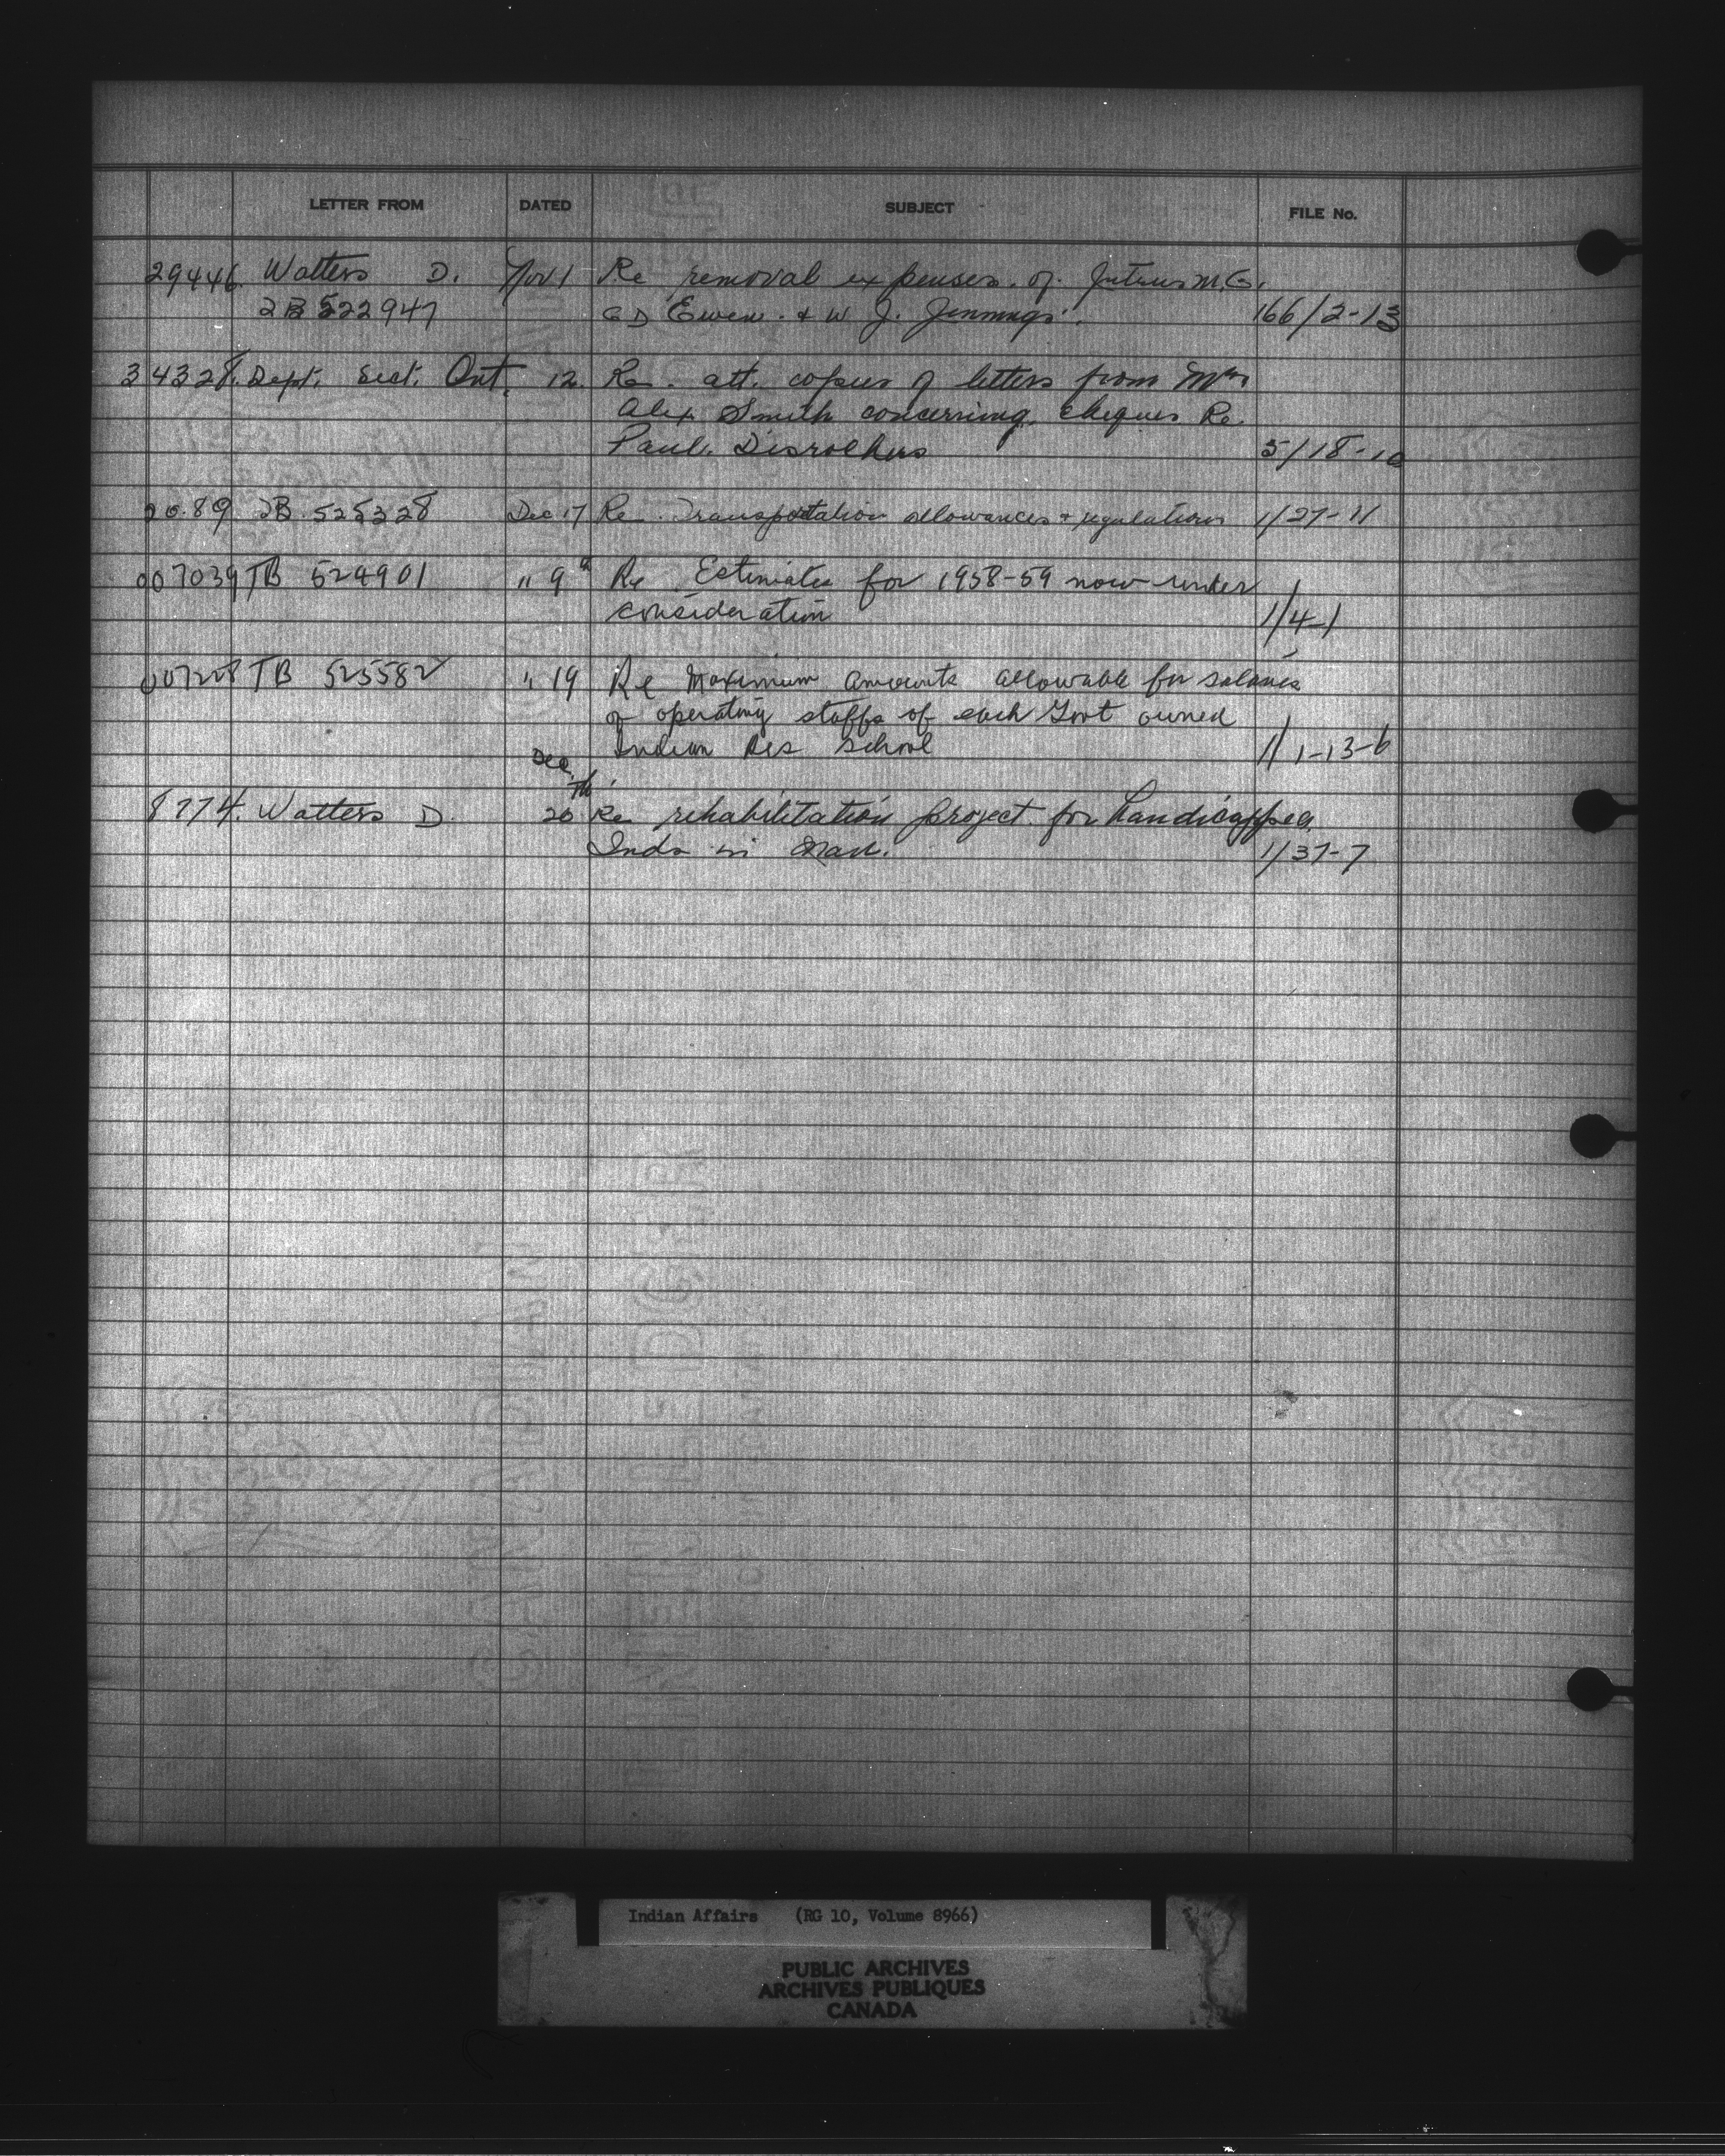 LETTER FROM DATED SUBJECT FILE No.
29446. Watters D. Nov 1 Re removal expenses of M.G.
522947 G D Ewen. & W J. Jennings. 166/2-13
34328. Dept. Sect. Ont. 12. Re. att. copies of letters from Mrs
Alex Smith concerning cheques Re.
Paul. 5/18-10
2089 TB 525328 Dec 17 Re. Transportation allowances & regulations 1/27-11
007039 TB 524901 " 9 Re Estimates for 1958-59 now under
consideration 1/4-1
007228 TB 525582 " 19 Re Maximum amounts allowable for salaries
of operating staffs of each Govt owned
Indian Res school 1/1-13-6
Dec.
8774. Watters D. 20th Re rehabilitation project for handicapped
Inds in Man. 1/37-7
Indian Affairs (RG 10, Volume 8966)
PUBLIC ARCHIVES
ARCHIVES PUBLIQUES
CANADA